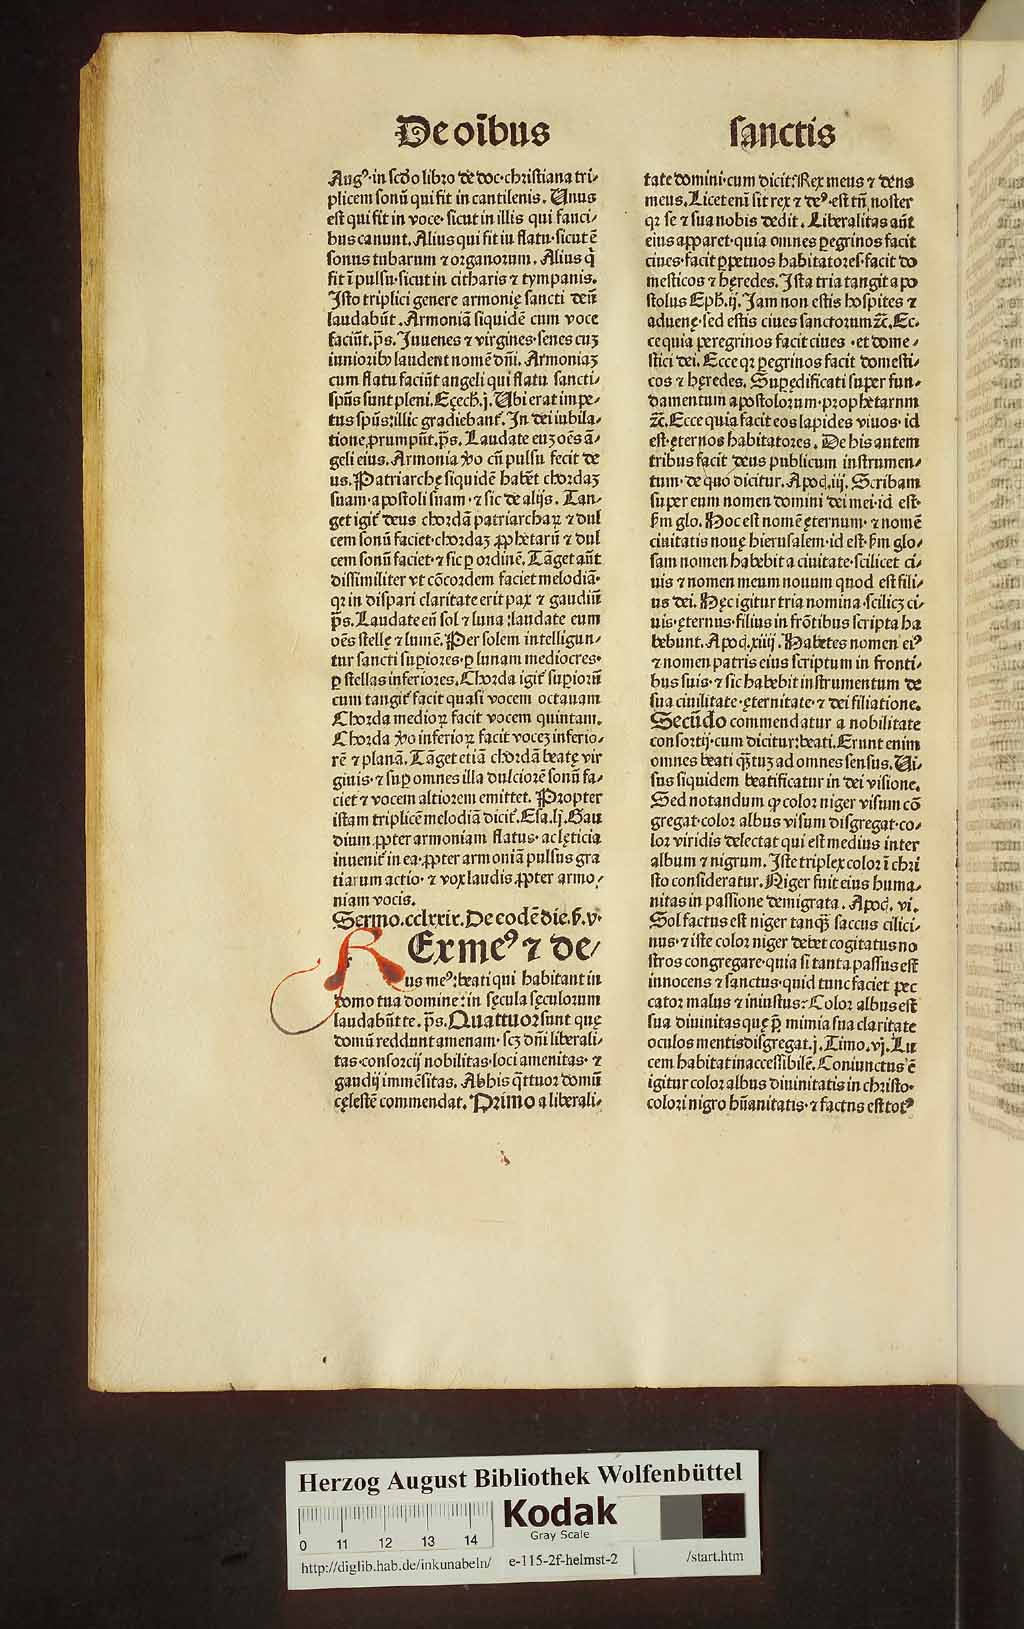 De oı̄bus sanctis
Augꝰ·in scd̄o libro de doc·christiana tri-
plicem sonū qui fit in cantilenis. Unus
est qui fit in voce·sicut in illis qui fauci-
bus canunt. Alius qui fit in flatu·sicut ē
sonus tubarum ⁊ organorum. Alius q̄
fit ī pulsu·sicut in citharis ⁊ tympanis.
Isto triplici genere armonię sancti deū
laudabūt. Armoniā siquidē cum voce
faciūt.p̄s. Juuenes ⁊ virgines·senes cuꝫ
iuniorib⁹ laudent nomē dn̄i. Armoniaꝫ
cum flatu faciūt angeli qui flatu sancti-
spūs sunt pleni. Eȩech.j. Ubi erat impe-
tus spūs:illic gradiebant᷑. In dei iubila-
tione ꝓrumpūt.p̄s. Laudate euꝫ oēs ā-
geli eius. Armonia ꝟo cū pulsu fecit de
us. Patriarchę siquidē habēt chordaꝫ
suam·apostoli suam·⁊ sic de alijs. Tan-
get igit᷑ deus chordā patriarchaꝝ ⁊ dul
cem sonū faciet·chordaꝫ ꝓphetarū ⁊ dul
cem sonū faciet·⁊ sic ꝑ ordinē. Tāget aūt
dissimiliter vt cōcordem faciet melodiā·
qꝛ in dispari claritate erit pax ⁊ gaudiū
p̄s. Laudate eū sol ⁊ luna:laudate eum
oēs stellę ⁊ lumē. Per solem intelligun-
tur sancti supiores·ꝑ lunam mediocres·
ꝑ stellas inferiores. Chorda igit᷑ supiorū
cum tangit᷑ facit quasi vocem octauam
Chorda medioꝝ facit vocem quintam.
Chorda ꝟo inferioꝝ facit voceꝫ inferio-
rē ⁊ planā. Tāget etiā chordā beatę vir
ginis·⁊ sup omnes illa dulciorē sonū fa-
ciet ⁊ vocem altiorem emittet. Propter
istam triplicē melodiā dicit᷑. Esa.lj. Gau
dium ꝓpter armoniam flatus·ac lęticia
inuenit᷑ in ea·ꝓpter armoniā pulsus gra
tiarum actio·⁊ vox laudis ꝓpter armo-
niam vocis.
Sermo.cclxxix. De eodē die.ß.v·
REx meꝰ ⁊ de-
us meꝰ:beati qui habitant in
domo tua domine:in sęcula sęculorum
laudabūt te.p̄s. Quattuor sunt quę
domū reddunt amenam·scꝫ dn̄i liberali-
tas·consorcij nobilitas·loci amenitas·⁊
gaudij immēsitas. Ab his q̄ttuor domū
cęlestē commendat. Primo a liberali-
tate domini·cum dicit:Rex meus ⁊ deus
meus. Licet enī sit rex ⁊ deꝰ·est tn̄ noster
qꝛ se ⁊ sua nobis dedit. Liberalitas aūt
eius apparet·quia omnes ꝑegrinos facit
ciues·facit ꝑpetuos habitatores·facit do
mesticos ⁊ hęredes. Ista tria tangit apo
stolus Eph.ij. Jam non estis hospites ⁊
aduenę·sed estis ciues sanctorum⁊c̄. Ec-
ce quia peregrinos facit ciues·et dome-
stici dei. Ecce qꝛ ꝑegrinos facit domesti-
cos ⁊ hęredes. Supędificati super fun-
damentum apostolorum·prophetarum
⁊c̄. Ecce quia facit eos lapides viuos·id
est·ęternos habitatores. De his autem
tribus facit deus publicum instrumen-
tum·de quo dicitur. Apoc̄.iij. Scribam
super eum nomen domini dei mei·id est·
ßm glo. Hoc est nomē ęternum·⁊ nomē
ciuitatis nouę hierusalem·id est·ßm glo-
sam nomen habebit a ciuitate·scilicet ci-
uis ⁊ nomen meum nouum quod est fili-
us dei. Hęc igitur tria nomina·scilicꝫ ci-
uis·ęternus·filius in frōtibus scripta ha
bebunt. Apoc̄.xiiij. Habētes nomen eiꝰ
⁊ nomen patris eius scriptum in fronti-
bus suis·⁊ sic habebit instrumentum de
sua ciuilitate·ęternitate·⁊ dei filiatione.
Secūdo commendatur a nobilitate
consortij·cum dicitur:beati. Erunt enim
omnes beati q̄tuꝫ ad omnes sensus. Vi-
sus siquidem beatificatur in dei visione.
Sed notandum ꝙ color niger visum cō
gregat·color albus visum disgregat·co-
lor viridis delectat qui est medius inter
album ⁊ nigrum. Iste triplex color ī chri
sto consideratur. Niger fuit eius huma-
nitas in passione demigrata. Apoc̄. vi.
Sol factus est niger tanq̄ saccus cilici-
nus·⁊ iste color niger debet cogitatus no
stros congregare·quia si tanta passus est
innocens ⁊ sanctus·quid tunc faciet pec
cator malus ⁊ iniustus: Color albus est
sua diuinitas quę p̄ nimia sua claritate
oculos mentis disgregat.j. Timo.vj. Lu
cem habitat inaccessibilē. Coniunctus ē
igitur color albus diuinitatis in christo·
colori nigro hūanitatis·⁊ factus est totꝰ
Herzog August Bibliothek Wolfenbüttel
Kodak
Gray Scale
0 11 12 13 14
http://diglib.hab.de/inkunabeln/ e-115-2f-helmst-2 /start.htm